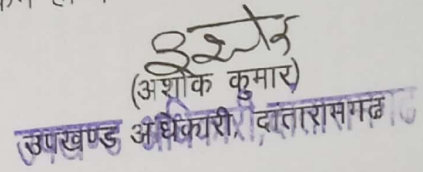 (अशोक कुमार)
उपखण्ड अधिकारी, दातारामगढ